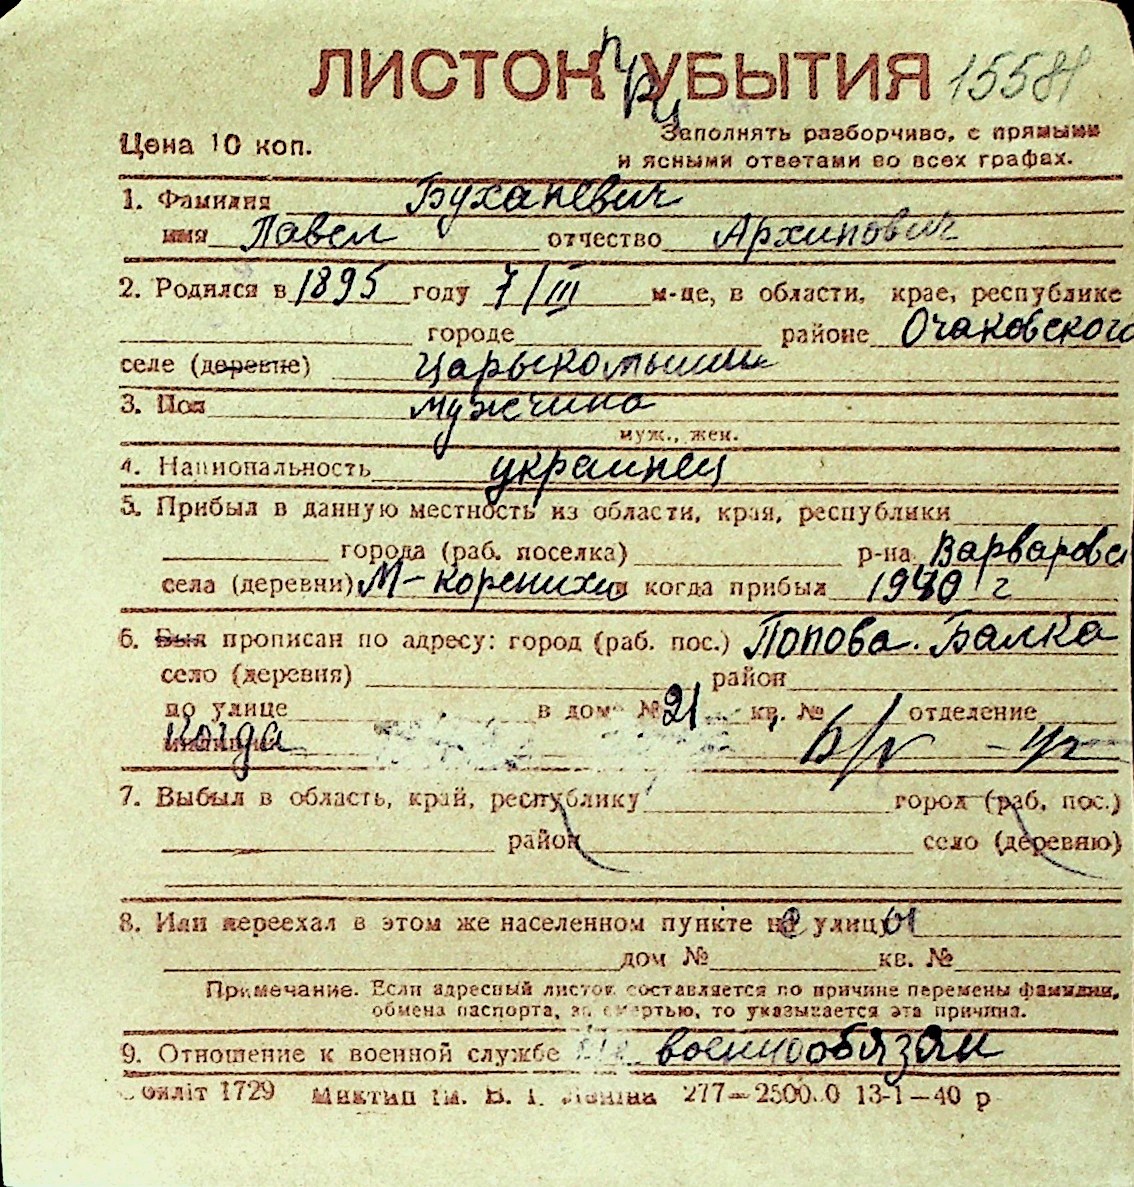 ЛИСТОК УБЫТИЯ 15581
При
Цена 10 коп. Заполнять разборчиво, с прямыми
и ясными ответами во всех графах.
1. Фамилия Буханевич
имя Павел отчество Архипович
2. Родился в 1895 году 7/III м-це, в области, крае, республике
городе районе Очаковского
селе (деревне) Царыкомыши
3. Пол мужчина
муж., жен.
4. Национальность украинец
5. Прибыл в данную местность из области, края, республики
города (раб. поселка) р-на Варваровс
села (деревни) М-корениха и когда прибыл 1940 г
6. Был прописан по адресу: город (раб. пос.) Попова Балка
село (деревня) район
по улице в дом № 21 кв. № отделение
Когда
7. Выбыл в область, край, республику город (раб. пос.)
район село (деревню)
8. Или переехал в этом же населенном пункте на улицы
дом № кв. №
Примечание. Если адресный листок составляется по причине перемены фамилии,
обмена паспорта, за смертью, то указывается эта причина.
9. Отношение к военной службе военнообязан
1729 Миктип ім. В. І. Леніна 277—2500.0 13-1—40 р